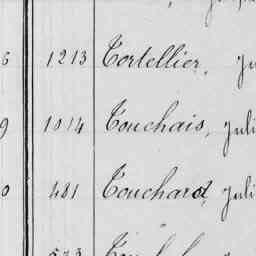 6 1213 Tortellier, Ju
9 1014 Touchais, Juli
0 481 Touchard, Juli
573